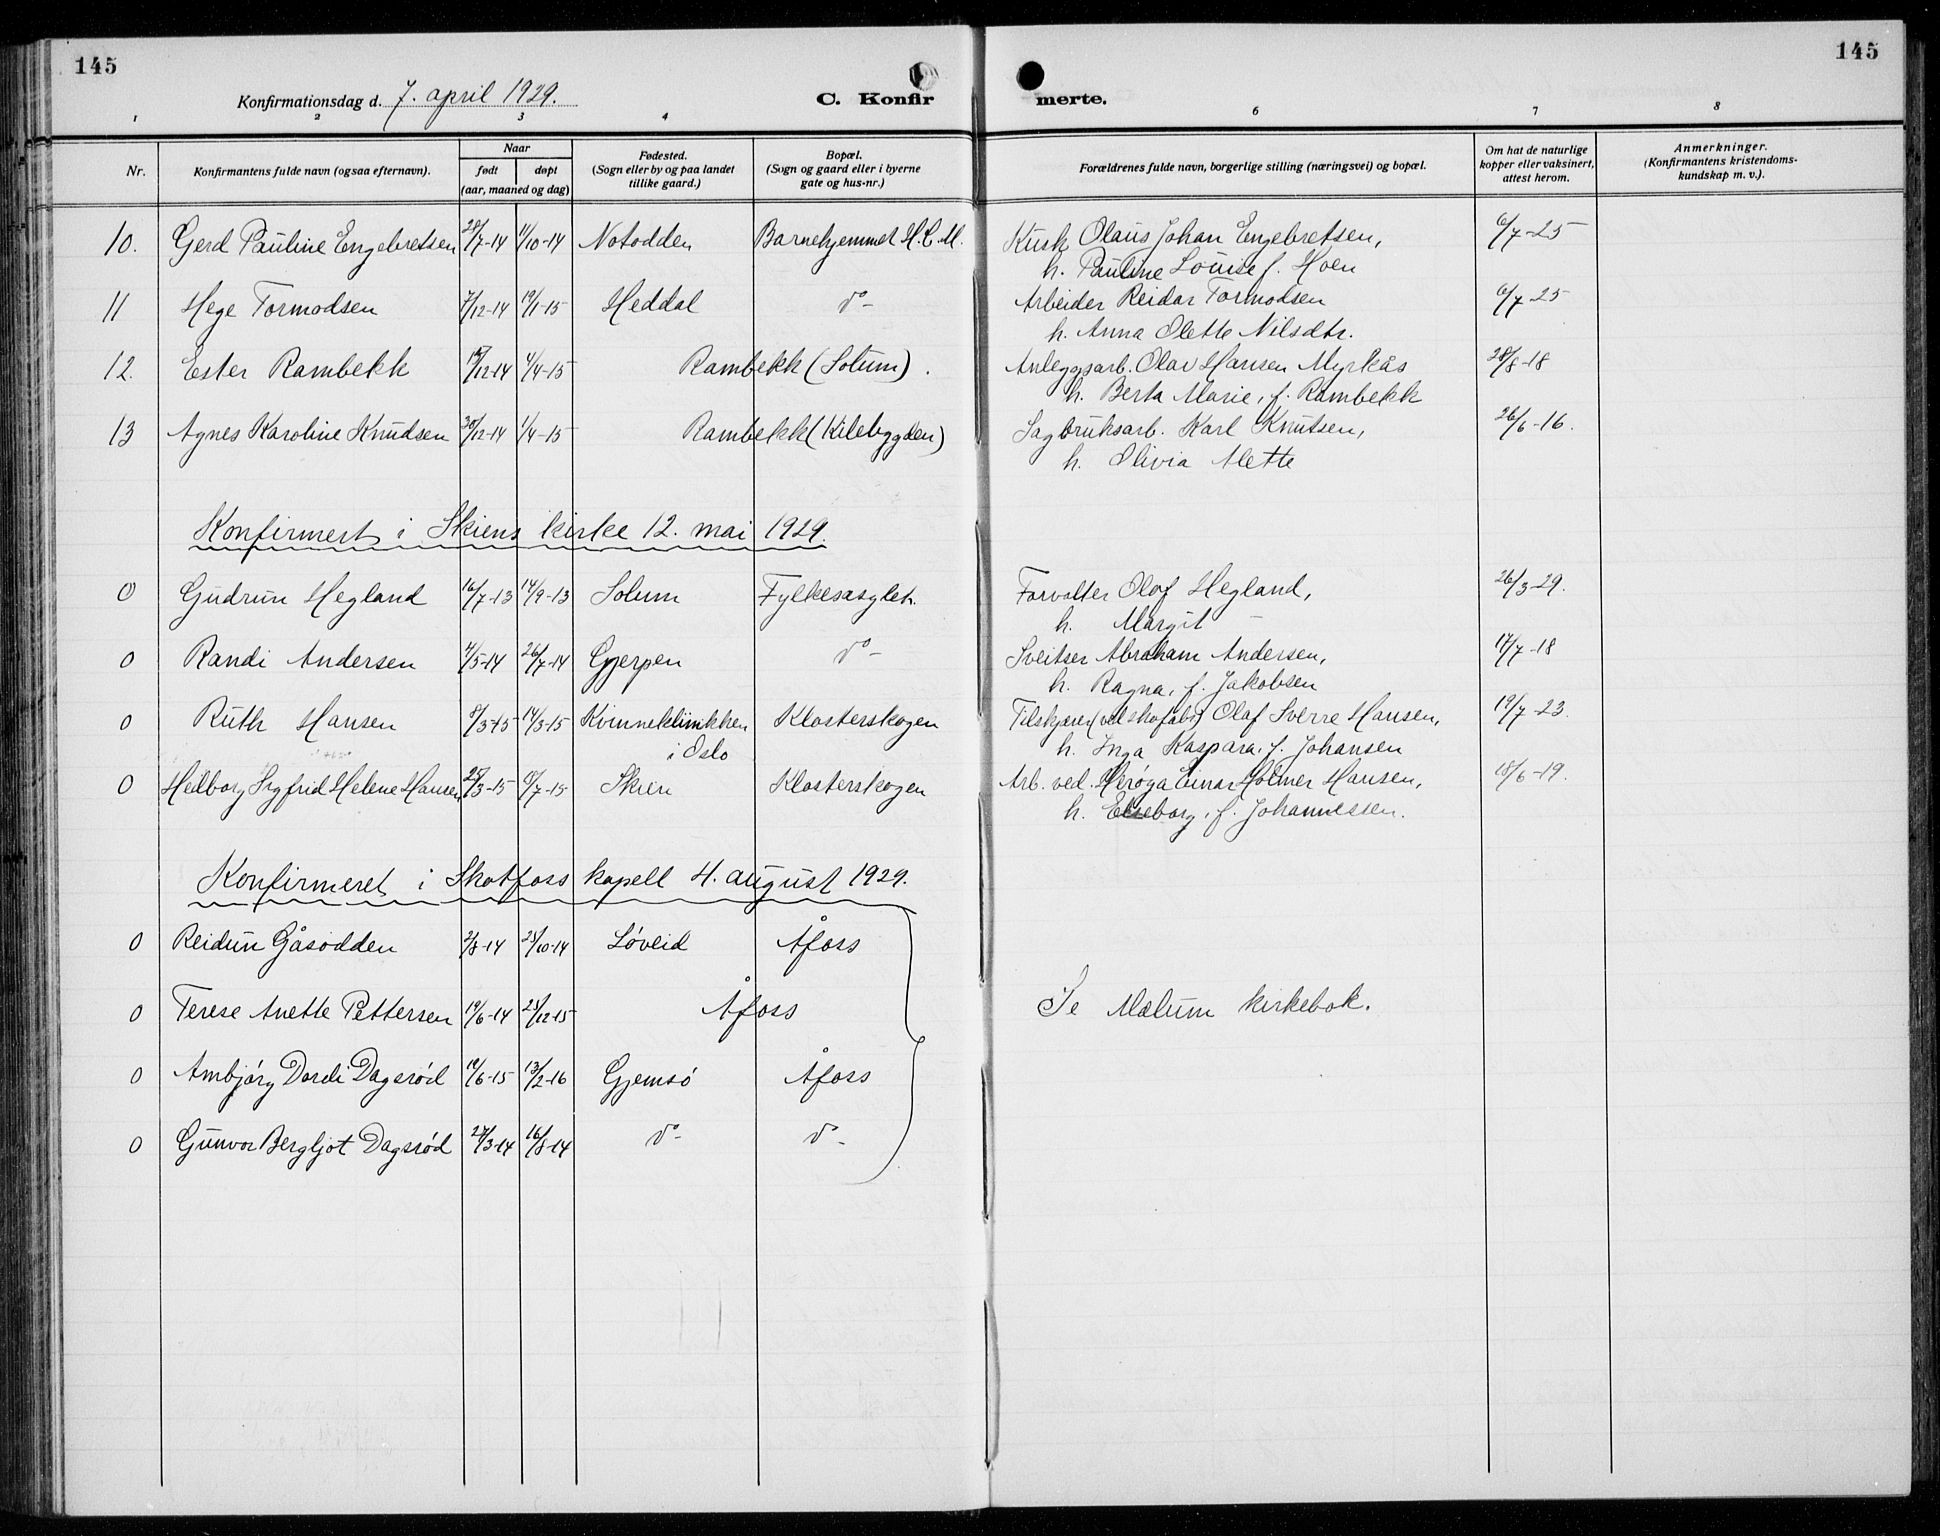 145
Konfirmationsdag d. 7. april 1929.
C. Konfirmerte.
145
1 2 3 4 6 7 8
Nr.
Konfirmantens fulde navn (ogsaa efternavn).
Naar
født døpt
(aar, maaned og dag)
Fødested.
(Sogn eller by og paa landet
tillike gaard.)
Bopæl.
(Sogn og gaard eller i byerne
gate og hus-nr.)
Forældrenes fulde navn, borgerlige stilling (næringsvei) og bopæl.
Om hat de naturlige
kopper eller vaksinert,
attest herom.
Anmerkninger.
(Konfirmantens kristendoms-
kundskap m. v.).
10. Gerd Pauline Engebretsen /7-14 11/10-14 Notodden Barnehjemmet H.L.M. Kusk Olaus Johan Engebretsen, 6/7-25
h. Pauline Louise f. Moen
11 Hege Tormodsen 7/12-14 19/1-15 Heddal do- Arbeider Reidar Tormodsen 6/7 25
h. Anna Olette Nilsdtr.
12. Ester Rambekk /12-14 4/4-15 Rambekk (Solum). Anleggsarb. Olav Hansen Myrkås 28/8-18
h. Berta Marie, f. Rambekk
13 Agnes Karoline Knudsen 30/12-14 1/4-15 Rambekk (Kilebygden) Sagbruksarb. Karl Knutsen, 26/6-16.
h. Olivia Mette
Konfirmert i Skiens kirke 12. mai 1929.
0 Gudrun Hegland 16/7-13 14/9-13 Solum Fylkesasylet. Forvalter Olaf Hegland, 26/3-29.
h. Margit –
0 Randi Andersen 4/5-14 26/7-14 Gjerpen do- Sveitser Abraham Andersen, 17/7-18
h. Ragna, f. Jakobsen
0 Ruth Hansen 8/3-15 14/3-15 Kvinneklinikken Klosterskogen Tilskjærer (ved skofabr) Olaf Sverre Hansen, 19/7-23.
i Oslo h. Inga Kaspara, f. Johansen
0 Hedborg Sigfrid Helene Hansen /3-15 /7-15 Skien Klosterskogen Arb. ved. Herøya Einar Holmer Hansen, 18/6-19.
h. Elseborg, f. Johannessen.
Konfirmeret i Skotfoss kapell 4. august 1929.
0 Reidun Gåsodden 2/8-14 25/10-14 Løveid Åfoss
0 Terese Anette Pettersen 19/6-14 25/12-15 Åfoss Se Mælum kirkebok.
0 Ambjørg Dordi Dagsrød 19/6-15 13/2-16 Gjemsø Åfoss
0 Gunvor Bergljot Dagsrød 27/3-14 16/8-14 do- do-